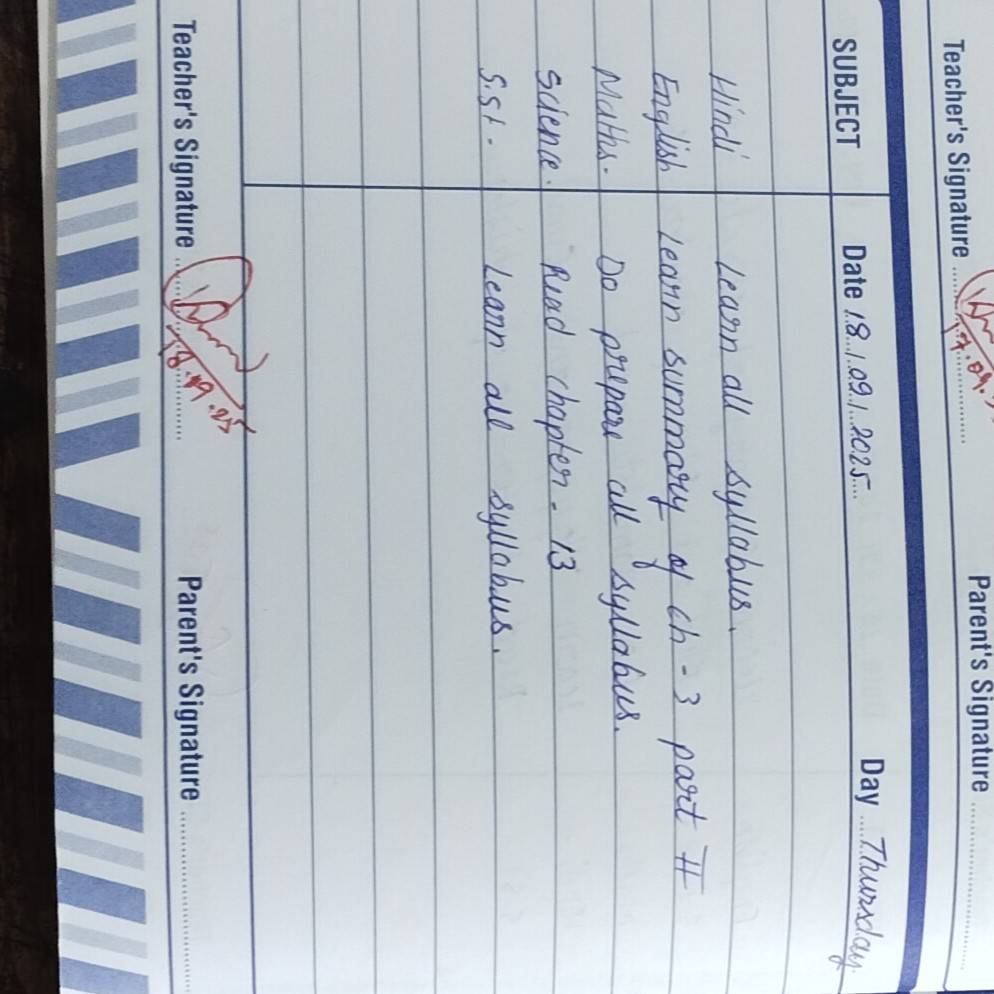 Teacher's Signature 17.09. Parent's Signature
SUBJECT Date 18.1.09.1.2025 Day Thursday
Hindi Learn all syllabus.
English Learn summary of ch - 3 part II
Maths. Do prepare all syllabus.
Science. Read chapter - 13
S.St. Learn all syllabus.
Teacher's Signature 18.09.25 Parent's Signature